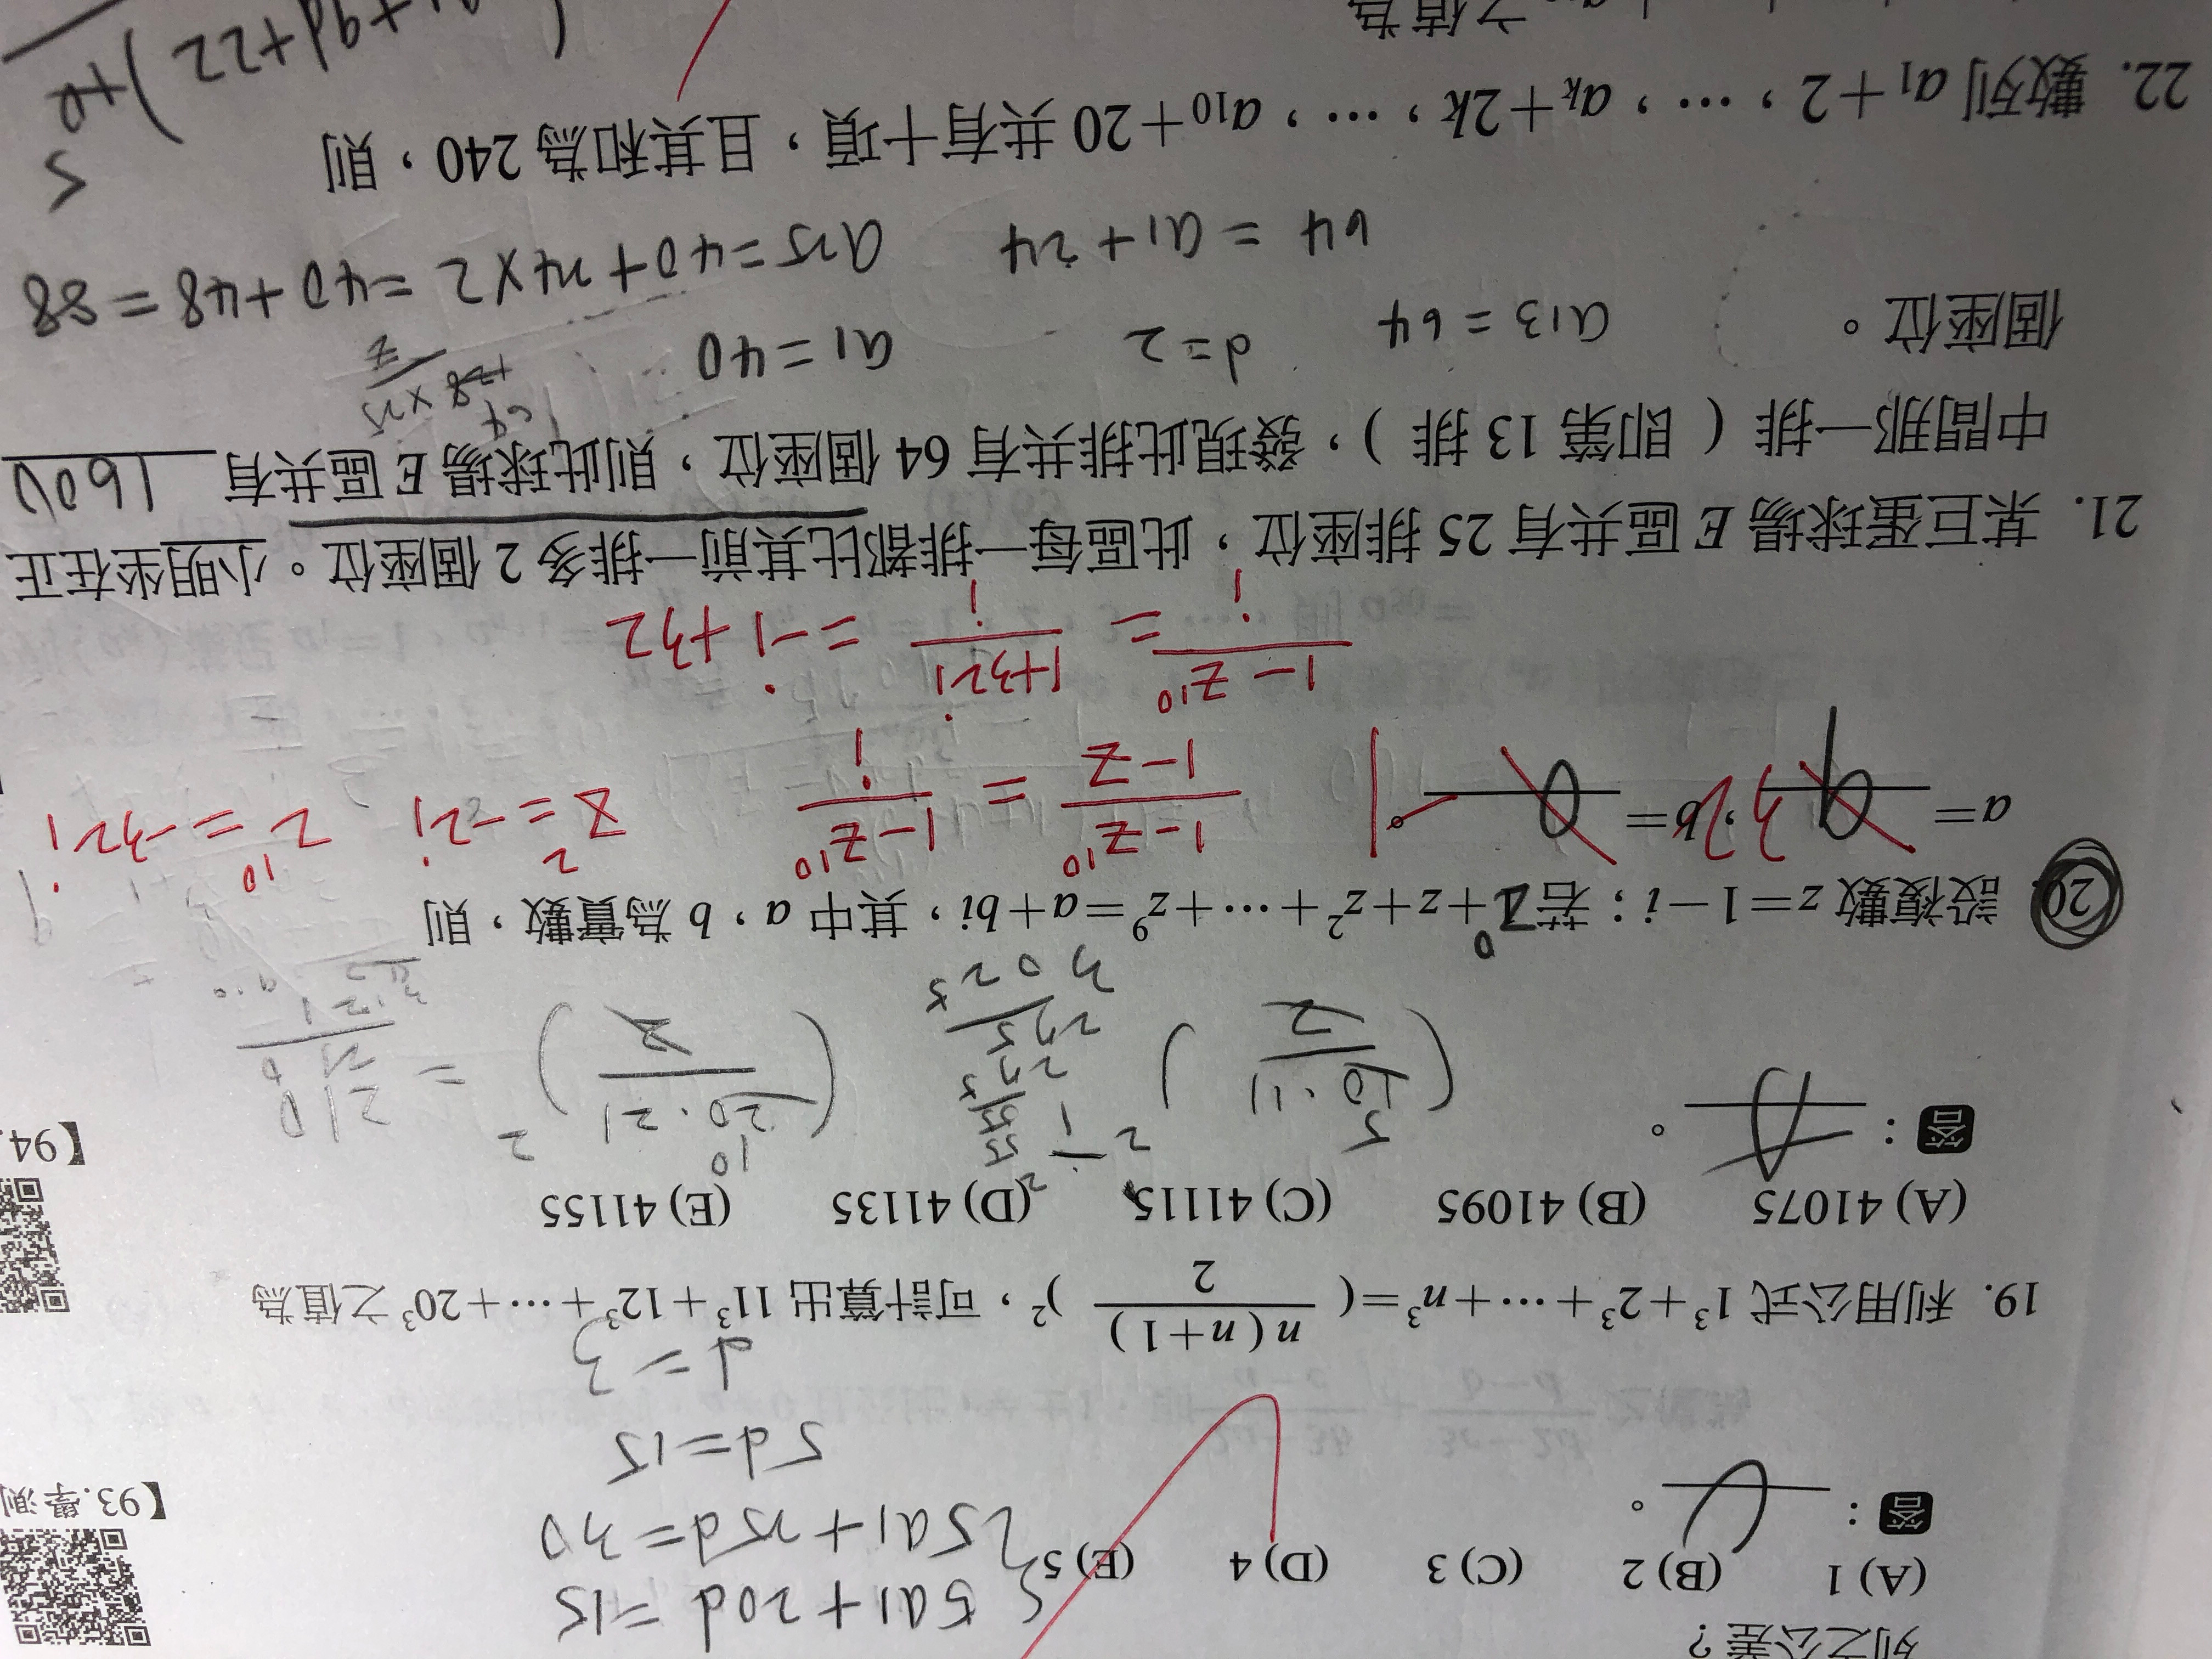 列之公差?
(A) 1 (B) 2 (C) 3 (D) 4 (E) 5
答: C 。
【93.學測
5a1+20d=15
25a1+25d=30
5d=15
d=3
19. 利用公式 1³+2³+⋯+n³=( n(n+1) / 2 )²,可計算出 11³+12³+⋯+20³ 之值為
(A) 41075 (B) 41095 (C) 41115 (D) 41135 (E) 41155
答: A 。
【94.
( 10·11 / 2 )²
5
55
55
275
275
3025
( 20·21 / 2 )² =
10
210
20. 設複數 z=1−i;若1+z+z²+⋯+z⁹=a+bi,其中 a,b 為實數,則
z⁰
a= 32 ,b= −1 。
1−z¹⁰ / 1−z = 1−z¹⁰ / i
z²=−2i
z¹⁰=−32i
1−z¹⁰ / i = 1+32i / i = −i+32
21. 某巨蛋球場 E 區共有 25 排座位,此區每一排都比其前一排多 2 個座位。小明坐在正
中間那一排(即第 13 排),發現此排共有 64 個座位,則此球場 E 區共有 1600
個座位。
a13=64 d=2 a1=40
64=a1+24 a25=40+24×2=40+48=88
22. 數列 a₁+2,⋯,aₖ+2k,⋯,a₁₀+20 共有十項,且其和為 240,則
5
+9d+22)
之值為